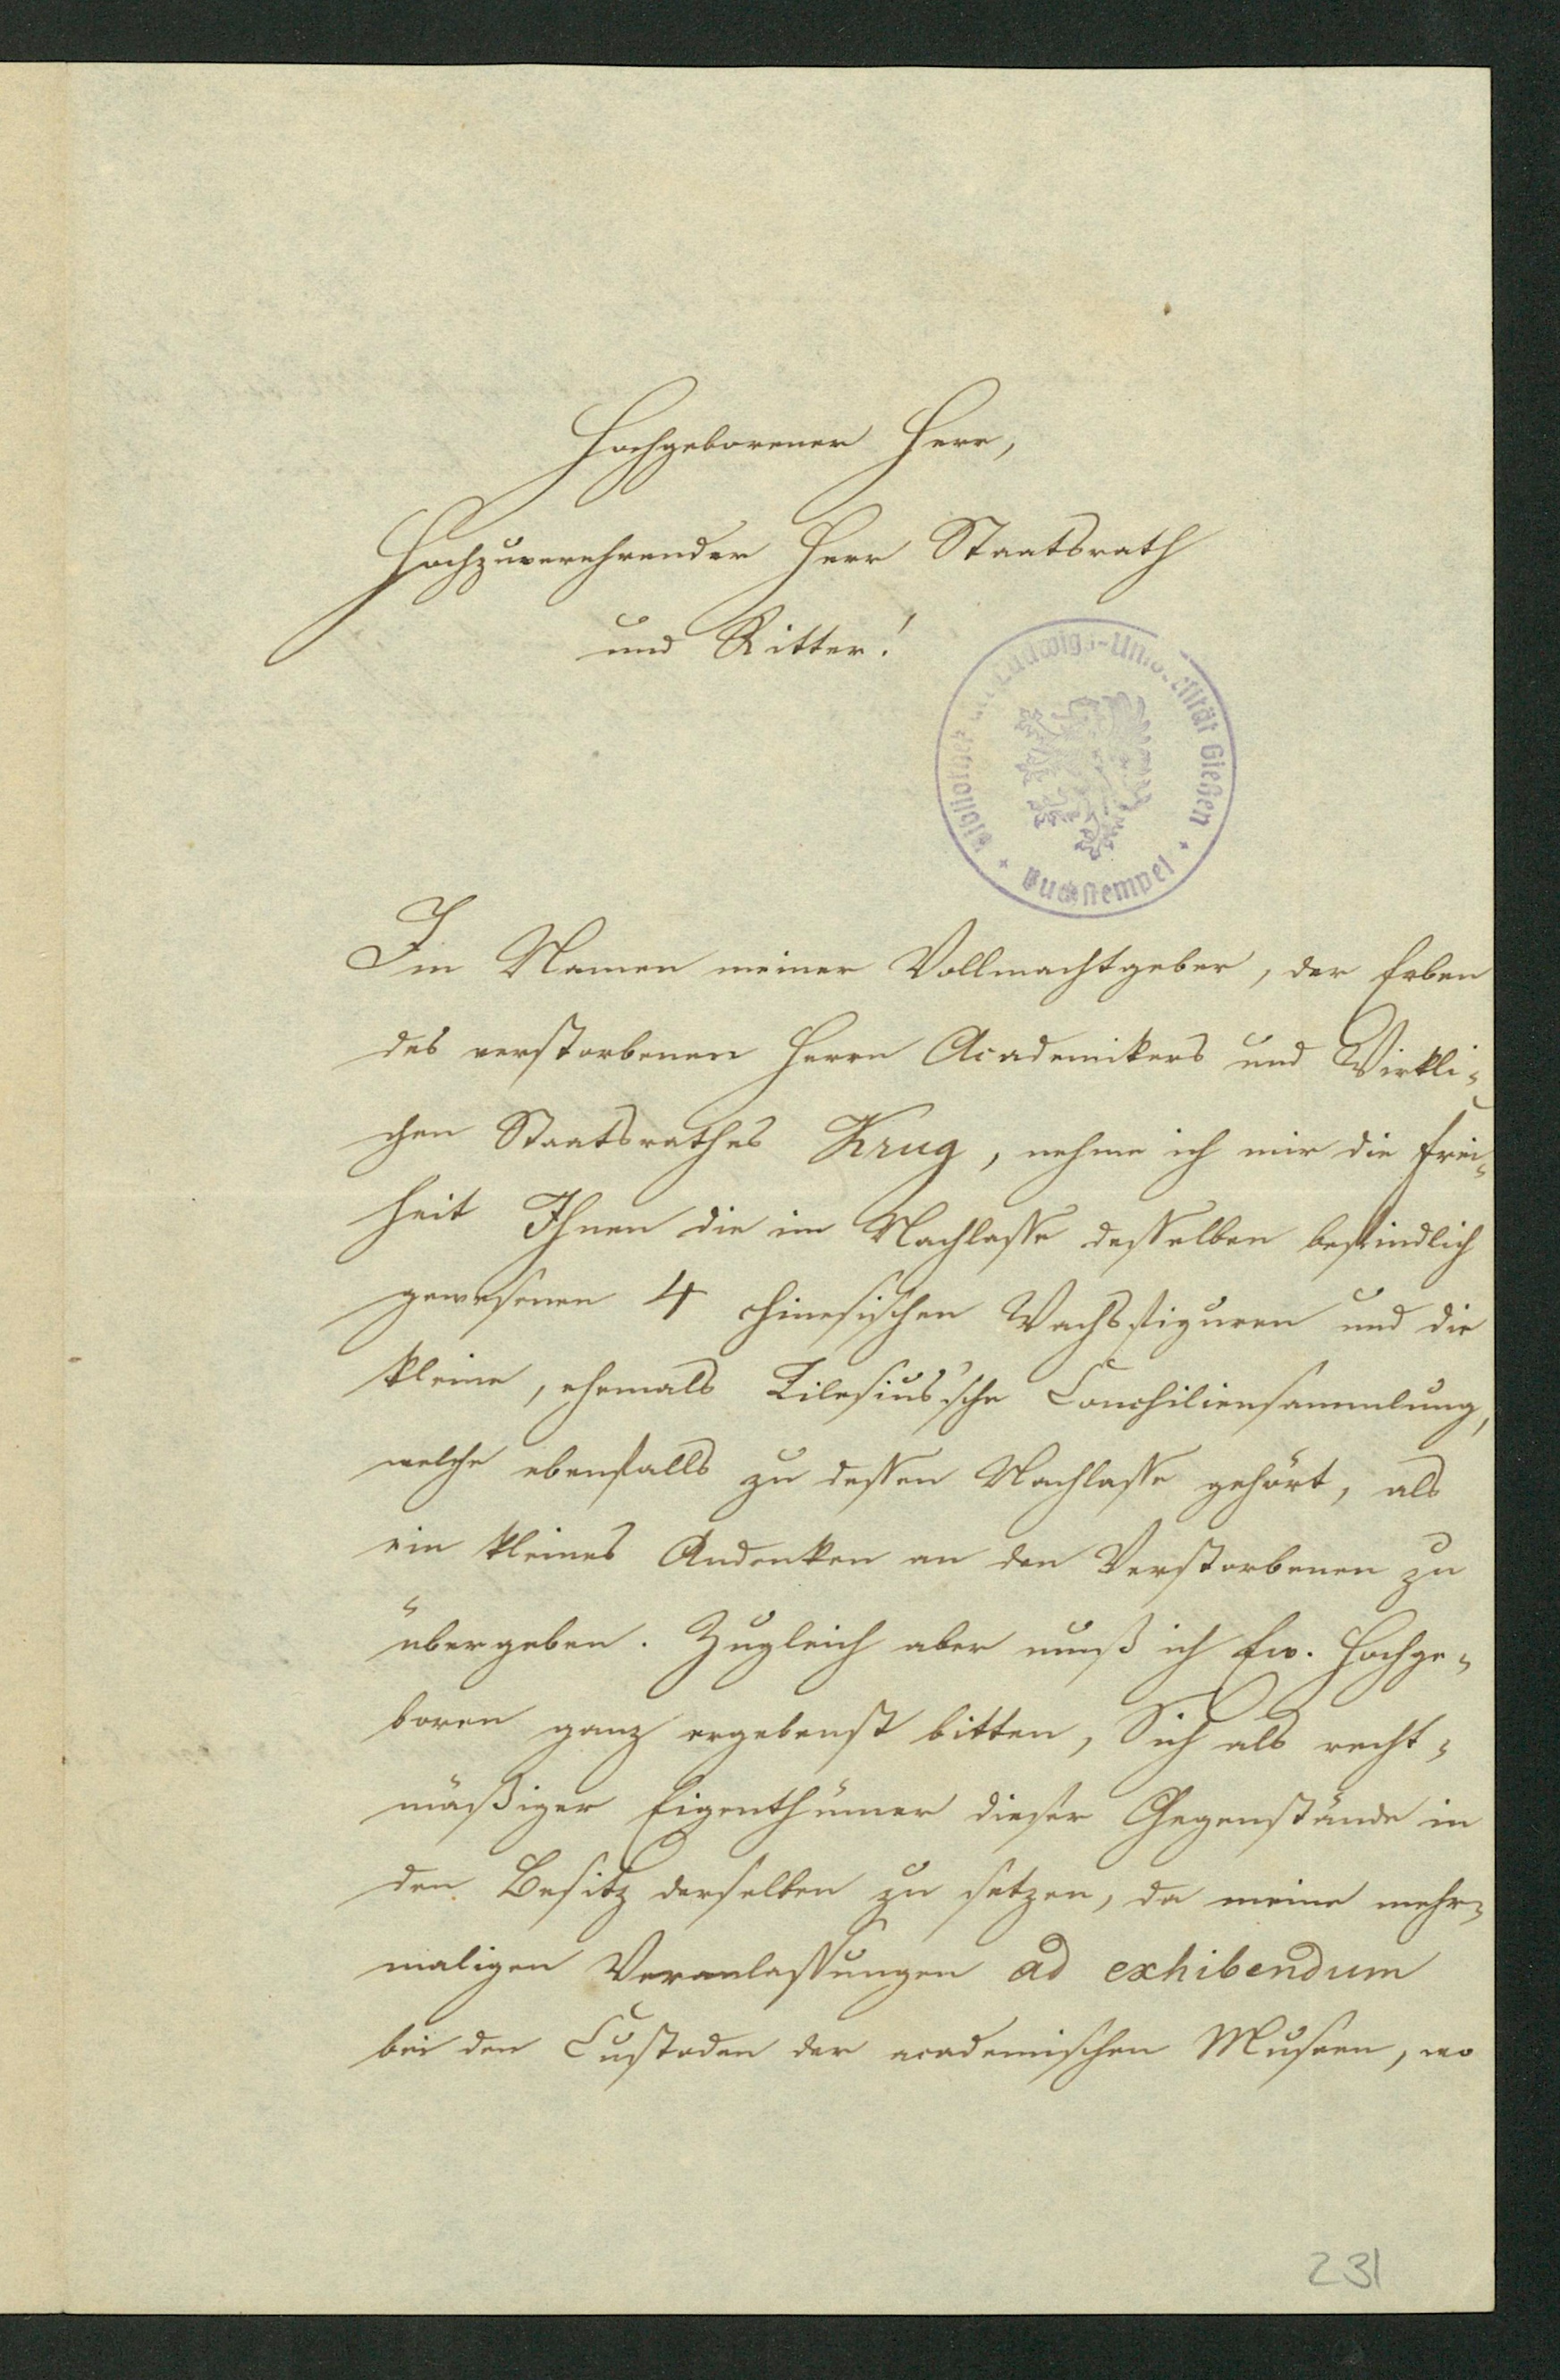 Hochgeborener Herr,
Hochzuverehrender Herr Staatsrath
und Ritter!
Bibliothek der Ludwigs-Universität Gießen
Buchstempel
Im Namen meiner Vollmachtgeber, der Erben
des verstorbenen Herrn Academikers und Wirkli-
chen Staatsrathes Krug, nehme ich mir die Frei-
heit Ihnen die im Nachlasse desselben befindlich
gewesenen 4 chinesischen Wachsfiguren und die
kleine, ehemals Tilesius'sche Conchiliensammlung,
welche ebenfalls zu dessen Nachlasse gehört, als
ein kleines Andenken an den Verstorbenen zu
übergeben. Zugleich aber muß ich Ew. Hochge-
boren ganz ergebenst bitten, Sich als recht-
mäßiger Eigenthümer dieser Gegenstände in
den Besitz derselben zu setzen, da meine mehr-
maligen Veranlassungen ad exhibendum
bei den Custoden der academischen Museen, wo
231